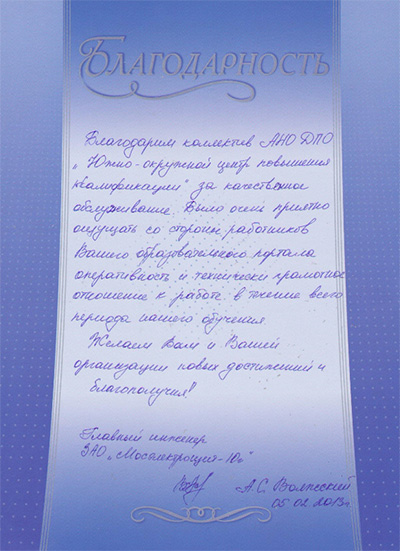 Благодарность
Благодарим коллектив АНО ДПО
„Южно-окружной центр повышения
квалификации" за качественное
обслуживание. Было очень приятно
ощущать со стороны работников
Вашего образовательного портала
оперативность и технически грамотное
отношение к работе в течение всего
периода нашего обучения.
Желаем Вам и Вашей
организации новых достижений и
благополучия!
Главный инженер
ЗАО „Мостелекрощия-Ю"
А.С. Волжский
05.02.2013г.